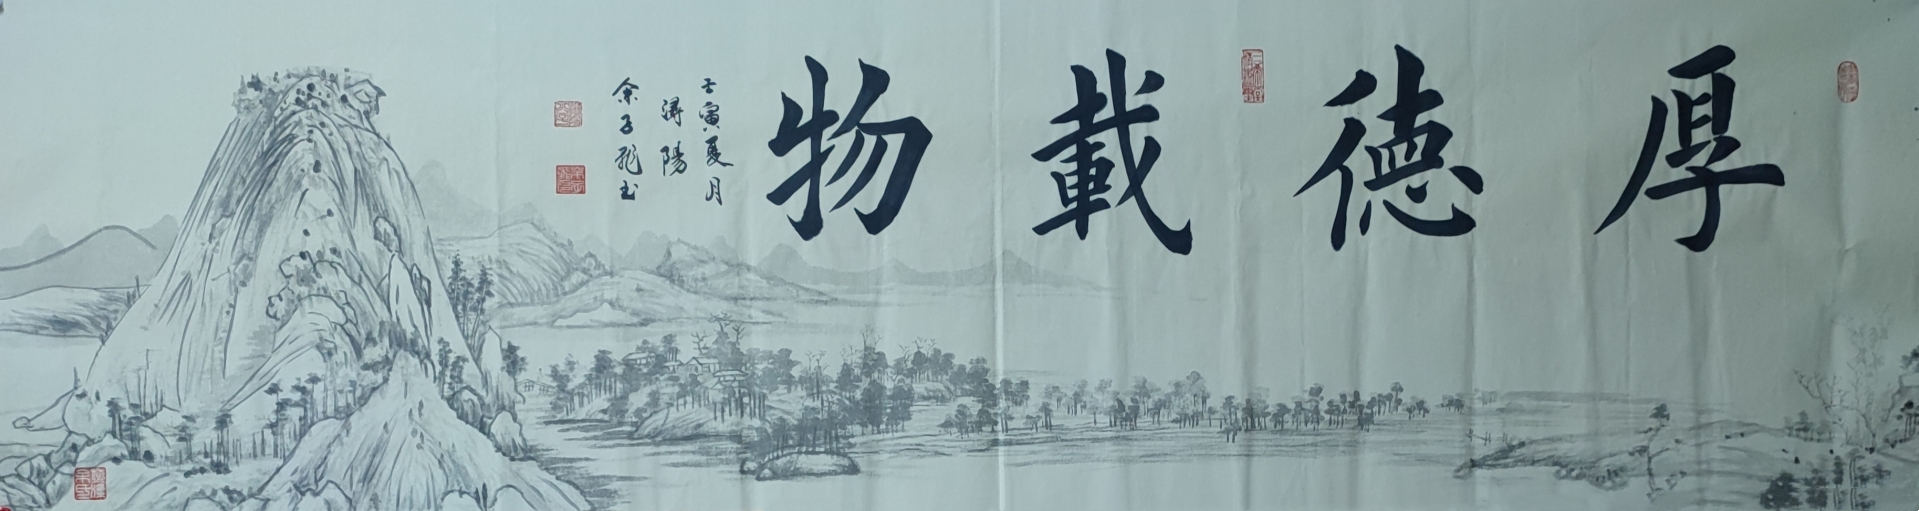 厚德載物
壬寅夏月
潯陽
余子飛书